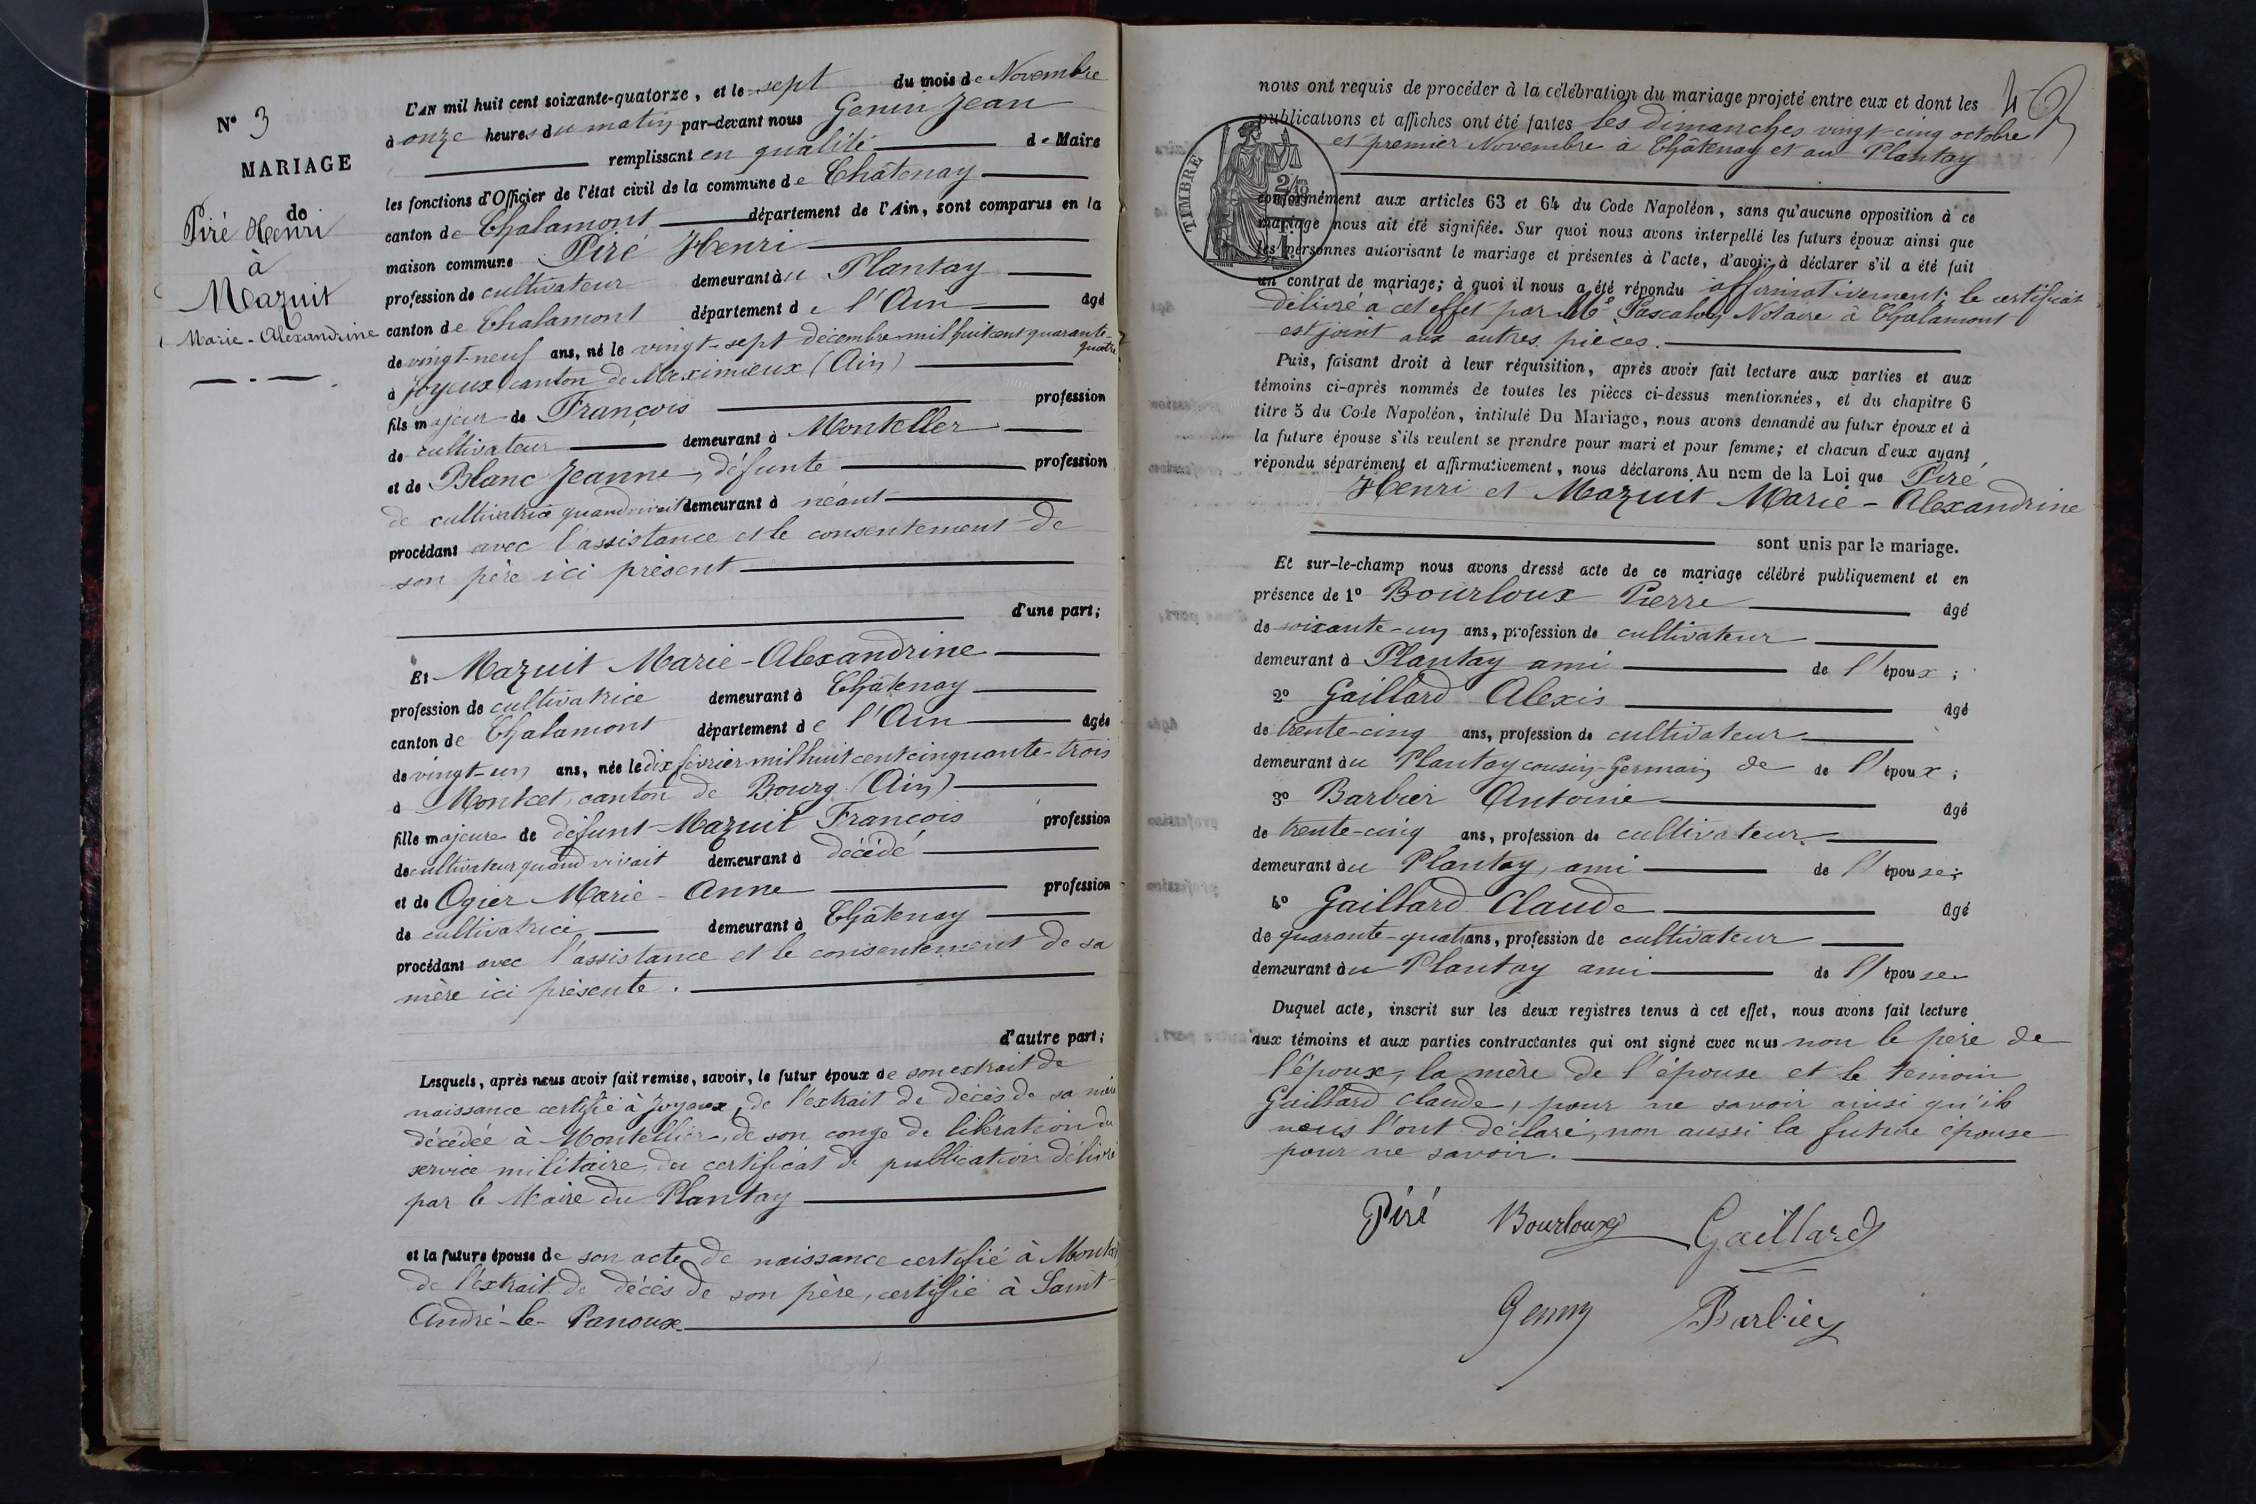 N° 3
MARIAGE
de
Piré Henri
à
Mazuit
Marie-Alexandrine
L'AN mil huit cent soixante-quatorze, et le sept du mois de Novembre
à onze heures du matin par-devant nous Genin Jean
remplissant en qualité de Maire
les fonctions d'Officier de l'état civil de la commune de Châtenay
canton de Chalamont département de l'Ain, sont comparus en la
maison commune Piré Henri
profession de cultivateur demeurant au Plantay
canton de Chalamont département de l'Ain âgé
de vingt-neuf ans, né le vingt-sept décembre mil huit cent quarante-
quatre
à Joyeux canton de Meximieux (Ain)
fils majeur de François profession
de cultivateur demeurant à Monteller
et de Blanc Jeanne, défunte profession
de cultivatrice quand vivait demeurant à néant
procédant avec l'assistance et le consentement de
son père ici présent
d'une part;
Et Mazuit Marie-Alexandrine
profession de cultivatrice demeurant à Châtenay
canton de Chalamont département de l'Ain âgée
de vingt-un ans, née le dix février mil huit cent cinquante-trois
à Montcet, canton de Bourg (Ain)
fille majeure de défunt Mazuit François profession
de cultivateur quand vivait demeurant à décédé
et de Ogier Marie-Anne profession
de cultivatrice demeurant à Châtenay
procédant avec l'assistance et le consentement de sa
mère ici présente.
d'autre part;
Lesquels, après nous avoir fait remise, savoir, le futur époux de son extrait de
naissance certifié à Joyeux, de l'extrait de décès de sa mère
décédée à Montellier, de son congé de libération du
service militaire, du certificat de publication délivré
par le Maire du Plantay
et la future épouse de son acte de naissance certifié à Montcet
de l'extrait de décès de son père, certifié à Saint-
André-le-Panoux
nous ont requis de procéder à la célébration du mariage projeté entre eux et dont les
publications et affiches ont été faites les dimanches vingt-cinq octobre
et premier Novembre à Châtenay et au Plantay
TIMBRE
conformément aux articles 63 et 64 du Code Napoléon, sans qu'aucune opposition à ce
mariage nous ait été signifiée. Sur quoi nous avons interpellé les futurs époux ainsi que
les personnes autorisant le mariage et présentes à l'acte, d'avoir à déclarer s'il a été fait
un contrat de mariage; à quoi il nous a été répondu affirmativement; le certificat
délivré à cet effet par Me Pascalon, Notaire à Chalamont
est joint aux autres pièces.
Puis, faisant droit à leur réquisition, après avoir fait lecture aux parties et aux
témoins ci-après nommés de toutes les pièces ci-dessus mentionnées, et du chapitre 6
titre 5 du Code Napoléon, intitulé Du Mariage, nous avons demandé au futur époux et à
la future épouse s'ils veulent se prendre pour mari et pour femme; et chacun d'eux ayant
répondu séparément et affirmativement, nous déclarons Au nom de la Loi que Piré
Henri et Mazuit Marie-Alexandrine
sont unis par le mariage.
Et sur-le-champ nous avons dressé acte de ce mariage célébré publiquement et en
présence de 1° Bourloux Pierre âgé
de soixante-un ans, profession de cultivateur
demeurant à Plantay ami de l'époux;
2° Gaillard Alexis âgé
de trente-cinq ans, profession de cultivateur
demeurant au Plantay cousin-Germain de de l'époux;
3° Barbier Antoine âgé
de trente-cinq ans, profession de cultivateur
demeurant au Plantay, ami de l'épouse;
4° Gaillard Claude âgé
de quarante-quatre ans, profession de cultivateur
demeurant au Plantay ami de l'épouse
Duquel acte, inscrit sur les deux registres tenus à cet effet, nous avons fait lecture
aux témoins et aux parties contractantes qui ont signé avec nous non le père de
l'époux, la mère de l'épouse et le témoin
Gaillard Claude, pour ne savoir ainsi qu'ils
nous l'ont déclaré, non aussi la future épouse
pour ne savoir.
Piré Bourloux Gaillard
Genin Barbier